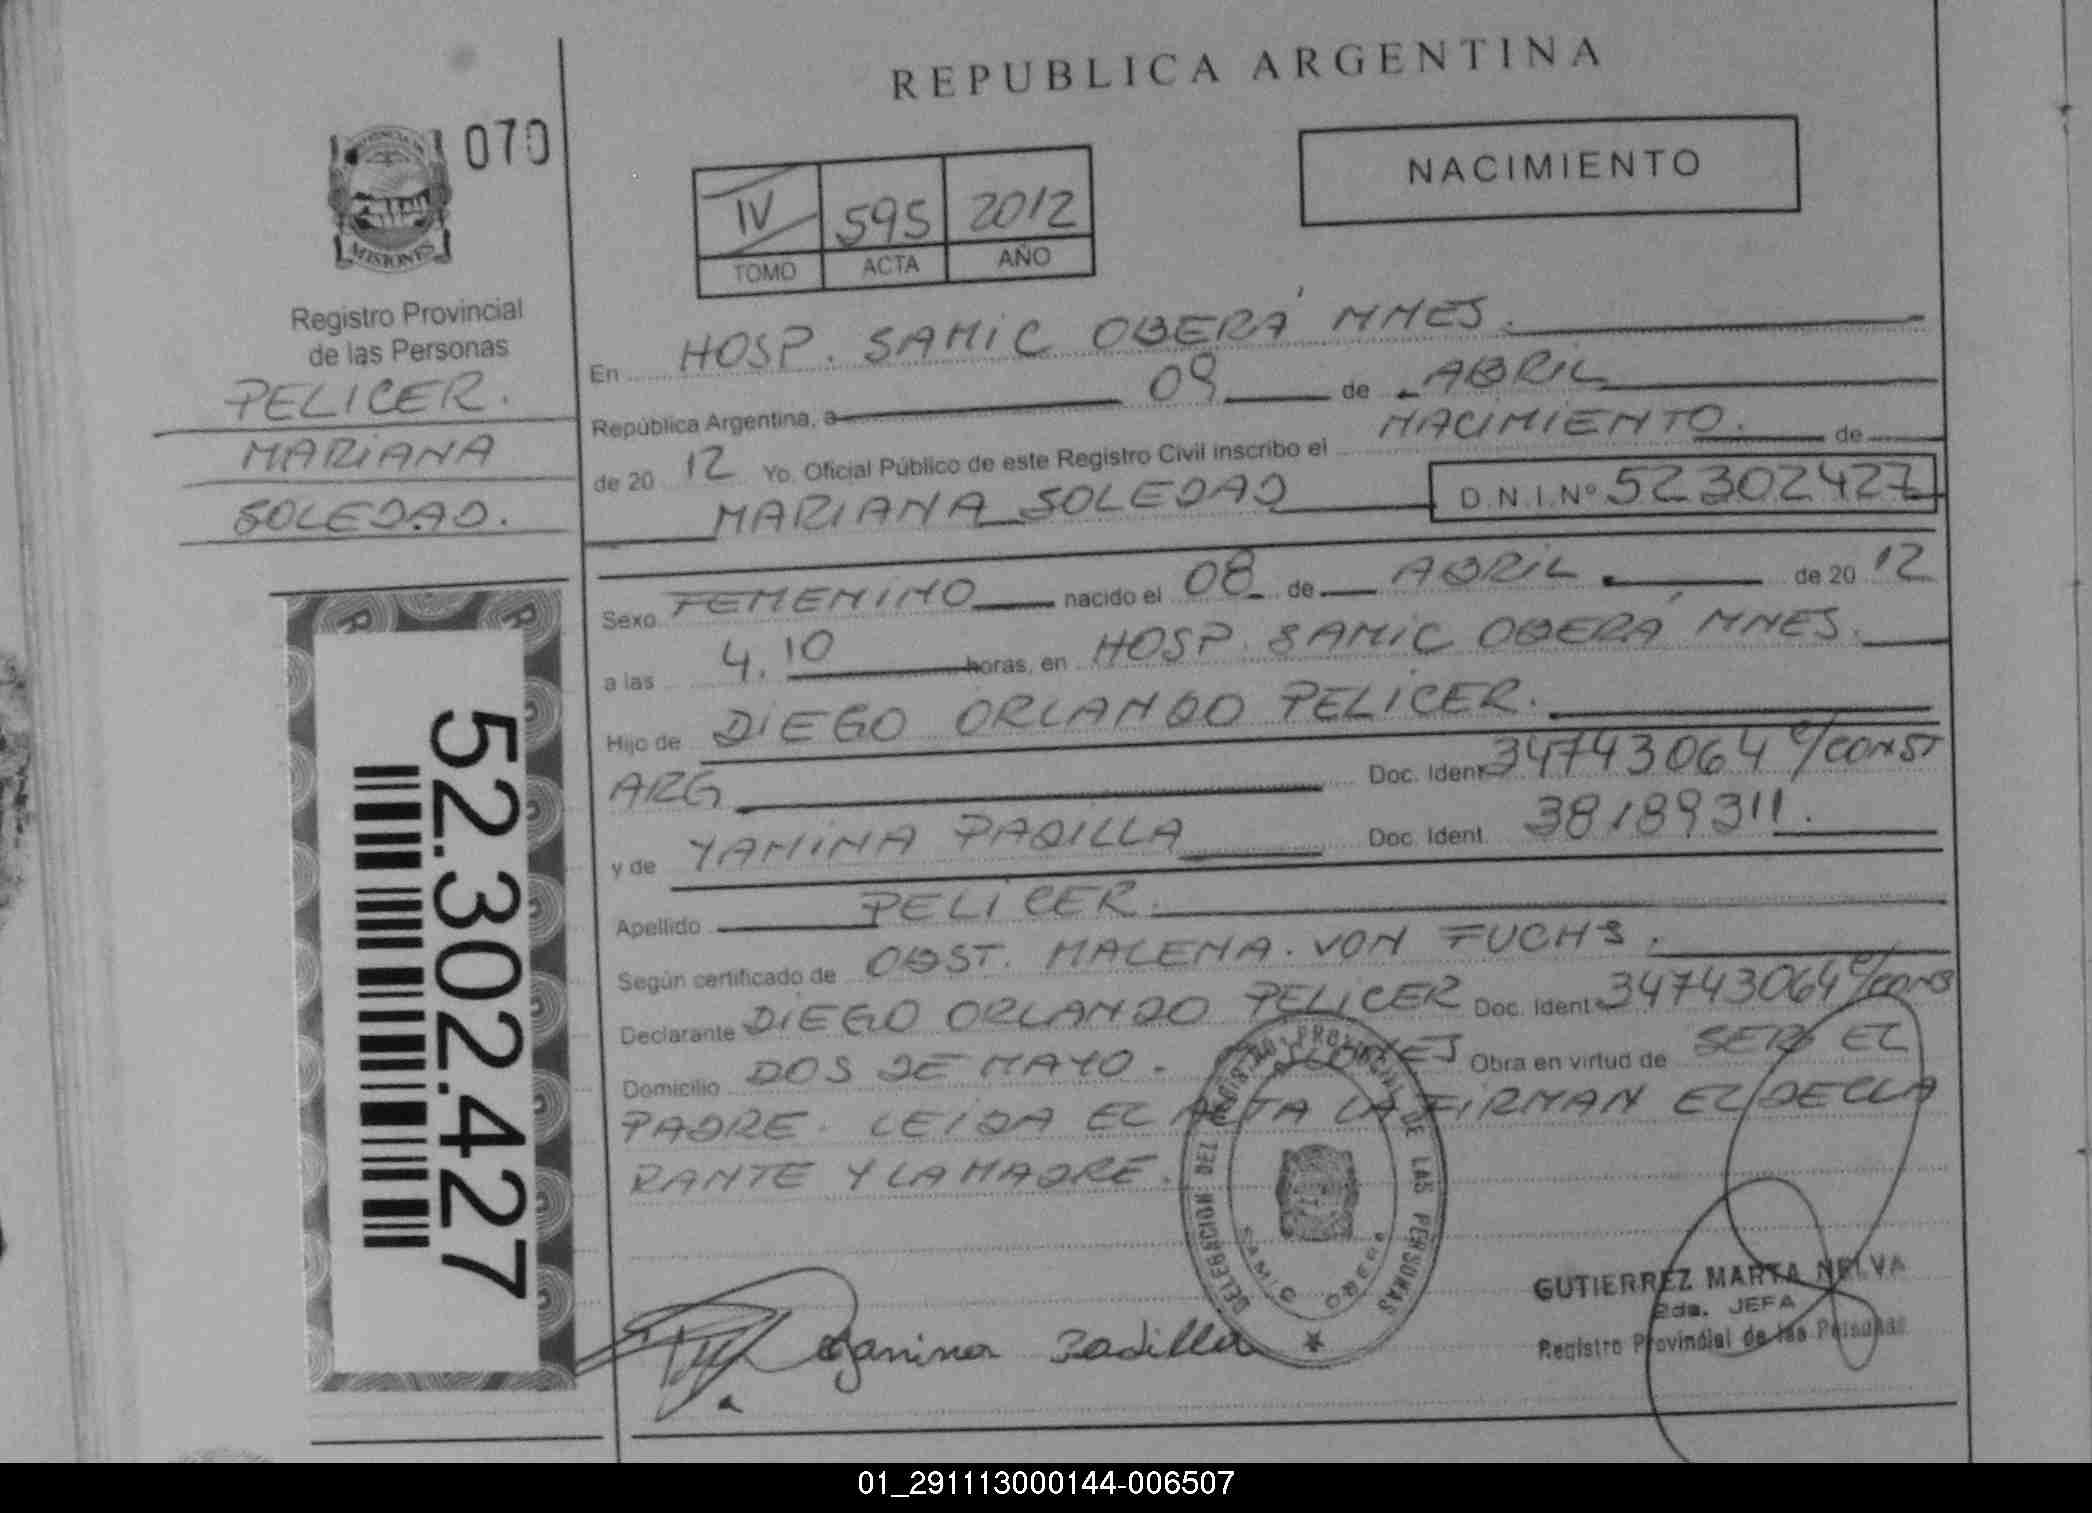 REPUBLICA ARGENTINA
070
NACIMIENTO
IV 595 2012
TOMO ACTA AÑO
MISIONES
Registro Provincial
de las Personas
PELICER.
MARIANA
SOLEDAD.
En HOSP. SAMIC OBERÁ MNES.
República Argentina, a 09 de ABRIL
de 2012 Yo, Oficial Público de este Registro Civil inscribo el NACIMIENTO. de
MARIANA SOLEDAD D.N.I.Nº 52302427
Sexo FEMENINO nacido el 08 de ABRIL de 2012
a las 4.10 horas, en HOSP. SAMIC OBERÁ MNES.
Hijo de DIEGO ORLANDO PELICER.
ARG Doc. Ident. 34743064 c/CONST
y de YAMINA PADILLA Doc. Ident. 38189311.
Apellido PELICER.
Según certificado de OBST. MALENA. VON FUCHS.
Declarante DIEGO ORLANDO PELICER Doc. Ident. 34743064 c/CONS
Domicilio DOS DE MAYO. MISIONES Obra en virtud de SER EL
PADRE. LEIDA EL ACTA LA FIRMAN EL DECLA
RANTE Y LA MADRE.
52.302.427
DELEGACION DEL REGISTRO PROVINCIAL DE LAS PERSONAS
SAMIC OBERA
Yanina Padilla
GUTIERREZ MARTA NELVA
2da. JEFA
Registro Provincial de las Personas
01_291113000144-006507